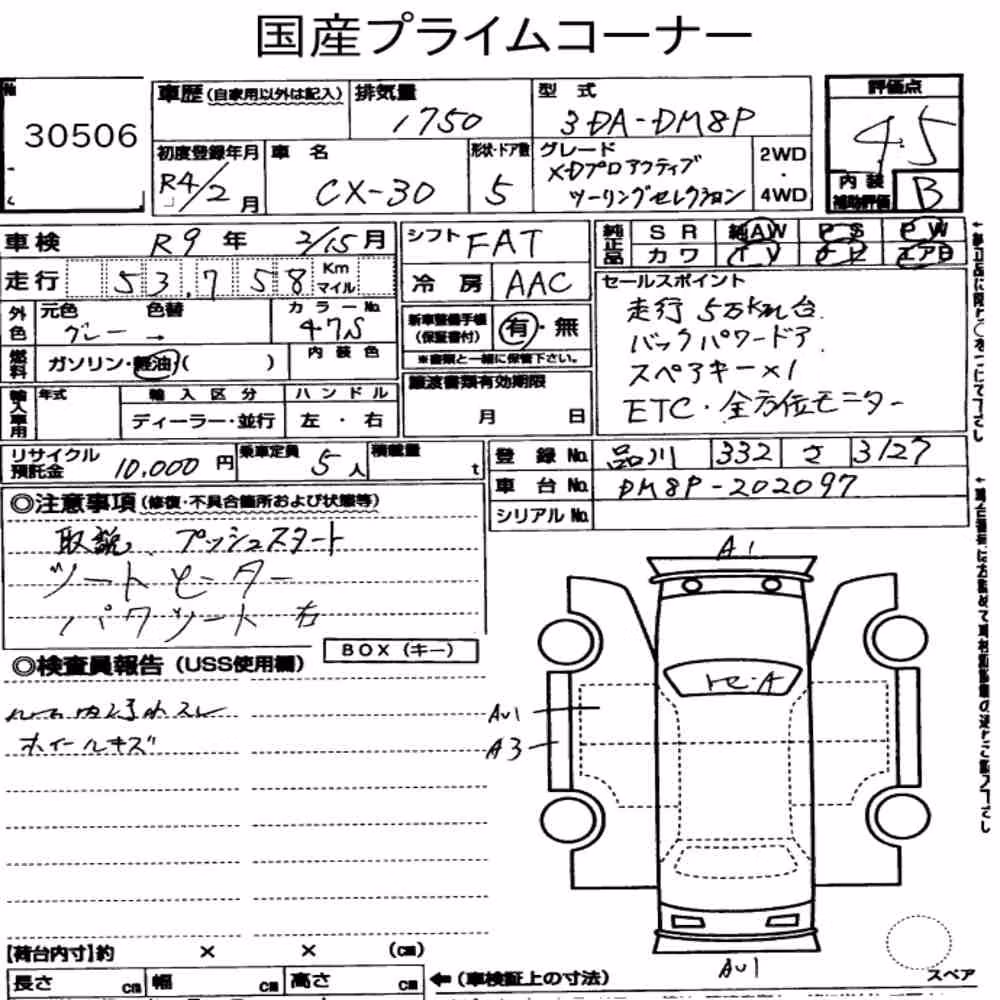 国産プライムコーナー
30506
車歴 (自家用以外は記入)
排気量
1750
型式
3DA-DM8P
評価点
4.5
初度登録年月
R4/2月
車名
CX-30
形状・ドア数
5
グレード
XDプロアクティブ
ツーリングセレクション
2WD
・
4WD
内装
補助評価
B
車検 R9年 2/15月
シフト FAT
純正品
SR 純AW PS PW
カワ TV ナビ エアB
走行 53,758 Km マイル
冷房 AAC
セールスポイント
走行5万Km台
バックパワードア
スペアキー×1
ETC・全方位モニター
外色
元色 色替 カラーNo.
グレー → 47S
新車整備手帳
(保証書付)
有・無
※書類と一緒に保管下さい。
燃料
ガソリン・軽油・( )
内装色
輸入車用
年式
輸入区分 ハンドル
ディーラー・並行 左・右
譲渡書類有効期限
月 日
リサイクル
預託金
10,000円
乗車定員
5人
積載量
t
登録No. 品川 332 さ 3127
車台No. DM8P-202097
シリアルNo.
◎注意事項(修復・不具合箇所および状態等)
取説、プッシュスタート
シートヒーター
パワシート右
BOX(キー)
◎検査員報告(USS使用欄)
ホイールキズ
A1
AU1
A3
AU1
スペア
【荷台内寸】約 × × (cm)
長さ cm 幅 cm 高さ cm
←(車検証上の寸法)